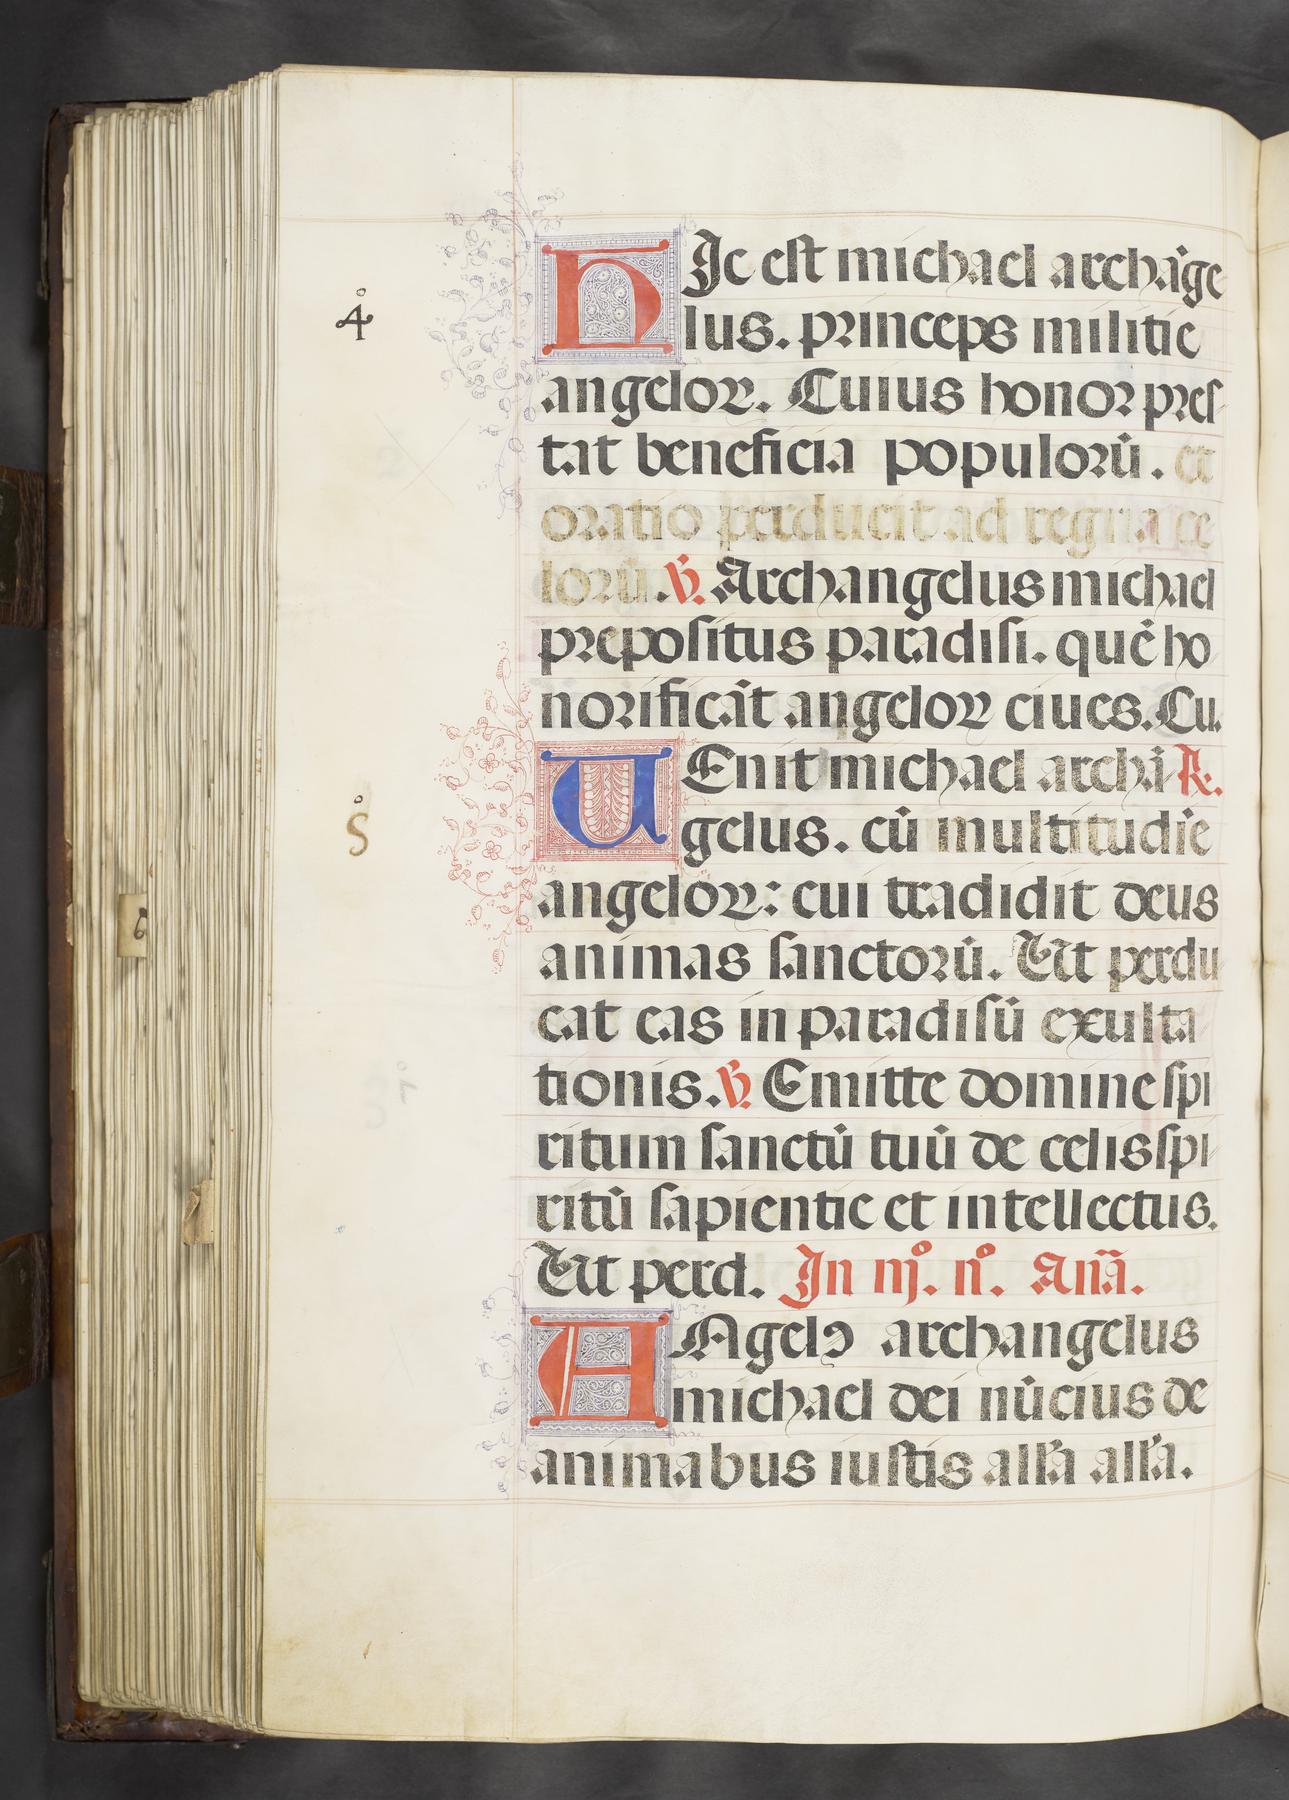 HIc est michael archāge
lus. princeps militie
angeloꝝ. Cuius honor pres-
tat beneficia populorū. et
oratio perducit ad regna ce
lorū. ℣. Archangelus michael
prepositus paradisi. quē ho
norificāt angeloꝝ ciues. Cu.
UEnit michael archā- ℟.
gelus. cū multitudīe
angeloꝝ: cui tradidit deus
animas sanctorū. Ut perdu
cat eas in paradisū exulta
tionis. ℣. Emitte domine spi
ritum sanctū tuū de celis spi-
ritū sapientie et intellectus.
Ut perd. In iij°. n°. Anā.
ANgelꝰ archangelus
michael dei nūcius de
animabus iustis all'a all'a.
4°
5°
6